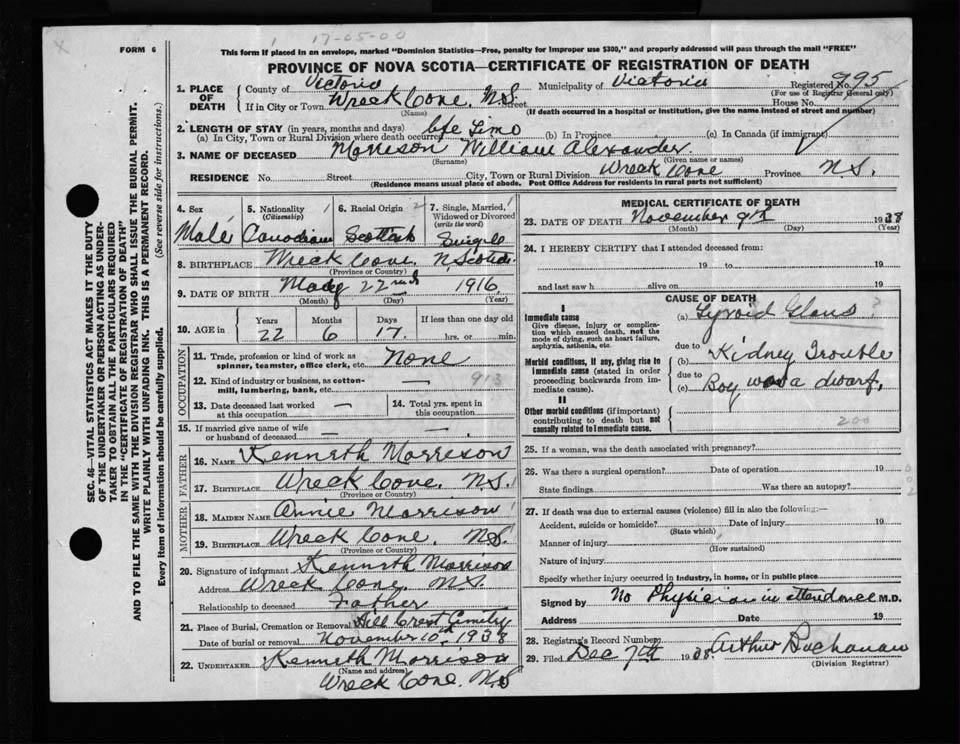 17-05-00
FORM 6
This form if placed in an envelope, marked "Dominion Statistics—Free, penalty for improper use $300," and properly addressed will pass through the mail "FREE"
PROVINCE OF NOVA SCOTIA—CERTIFICATE OF REGISTRATION OF DEATH
1. PLACE OF DEATH County of Victoria Municipality of Victoria Registered No. 995
(For use of Registrar General only)
If in City or Town Wreck Cove. N.S. Street House No.
(Name) (If death occurred in a hospital or institution, give the name instead of street and number)
2. LENGTH OF STAY (in years, months and days)
(a) In City, Town or Rural Division where death occurred life Time (b) In Province (c) In Canada (if immigrant)
3. NAME OF DECEASED Morrison William Alexander
(Surname) (Given name or names)
RESIDENCE No. Street City, Town or Rural Division Wreck Cove Province N.S.
(Residence means usual place of abode. Post Office Address for residents in rural parts not sufficient)
SEC. 46—VITAL STATISTICS ACT MAKES IT THE DUTY
OF THE UNDERTAKER OR PERSON ACTING AS UNDER-
TAKER TO OBTAIN ALL THE PARTICULARS REQUIRED
IN THE "CERTIFICATE OF REGISTRATION OF DEATH"
AND TO FILE THE SAME WITH THE DIVISION REGISTRAR WHO SHALL ISSUE THE BURIAL PERMIT.
WRITE PLAINLY WITH UNFADING INK. THIS IS A PERMANENT RECORD.
Every item of information should be carefully supplied. (See reverse side for instructions.)
4. Sex 5. Nationality (Citizenship) 6. Racial Origin 7. Single, Married, Widowed or Divorced (write the word)
Male Canadian Scottish Single
8. BIRTHPLACE Wreck Cove. N. Scotia.
(Province or Country)
9. DATE OF BIRTH 22nd 1916
(Month) (Day) (Year)
10. AGE in Years Months Days If less than one day old
22 6 17. hrs. or min.
OCCUPATION
11. Trade, profession or kind of work as spinner, teamster, office clerk, etc. None
12. Kind of industry or business, as cotton-mill, lumbering, bank, etc. — 913
13. Date deceased last worked at this occupation — 14. Total yrs. spent in this occupation
15. If married give name of wife or husband of deceased — —
FATHER
16. NAME Kenneth Morrison
17. BIRTHPLACE Wreck Cove. N.S.
(Province or Country)
MOTHER
18. MAIDEN NAME Annie Morrison
19. BIRTHPLACE Wreck Cove. N.S.
(Province or Country)
20. Signature of informant Kenneth Morrison
Address Wreck Cove. N.S.
Relationship to deceased Father
21. Place of Burial, Cremation or Removal Hill Crest Cemitry
Date of burial or removal November 10th 1938
22. UNDERTAKER Kenneth Morrison
(Name and address)
Wreck Cove. N.S
MEDICAL CERTIFICATE OF DEATH
23. DATE OF DEATH November 9th 1938
(Month) (Day) (Year)
24. I HEREBY CERTIFY that I attended deceased from:
19 to 19
and last saw h alive on 19
CAUSE OF DEATH
I
Immediate cause
Give disease, injury or complication which caused death, not the mode of dying, such as heart failure, asphyxia, asthenia, etc.
(a) ?
due to
Morbid conditions, if any, giving rise to immediate cause (stated in order proceeding backwards from immediate cause).
(b) Kidney Trouble
due to
(c) Boy was a dwarf.
II
Other morbid conditions (if important) contributing to death but not causally related to immediate cause.
200
25. If a woman, was the death associated with pregnancy?
26. Was there a surgical operation? Date of operation 19
State findings Was there an autopsy?
27. If death was due to external causes (violence) fill in also the following:—
Accident, suicide or homicide? Date of injury 19
(State which)
Manner of injury
(How sustained)
Nature of injury
Specify whether injury occurred in industry, in home, or in public place
Signed by No Physician in attendance M.D.
Address Date 19
28. Registrar's Record Number
29. Filed Dec 7th 1938. Arthur Buchanan
(Division Registrar)